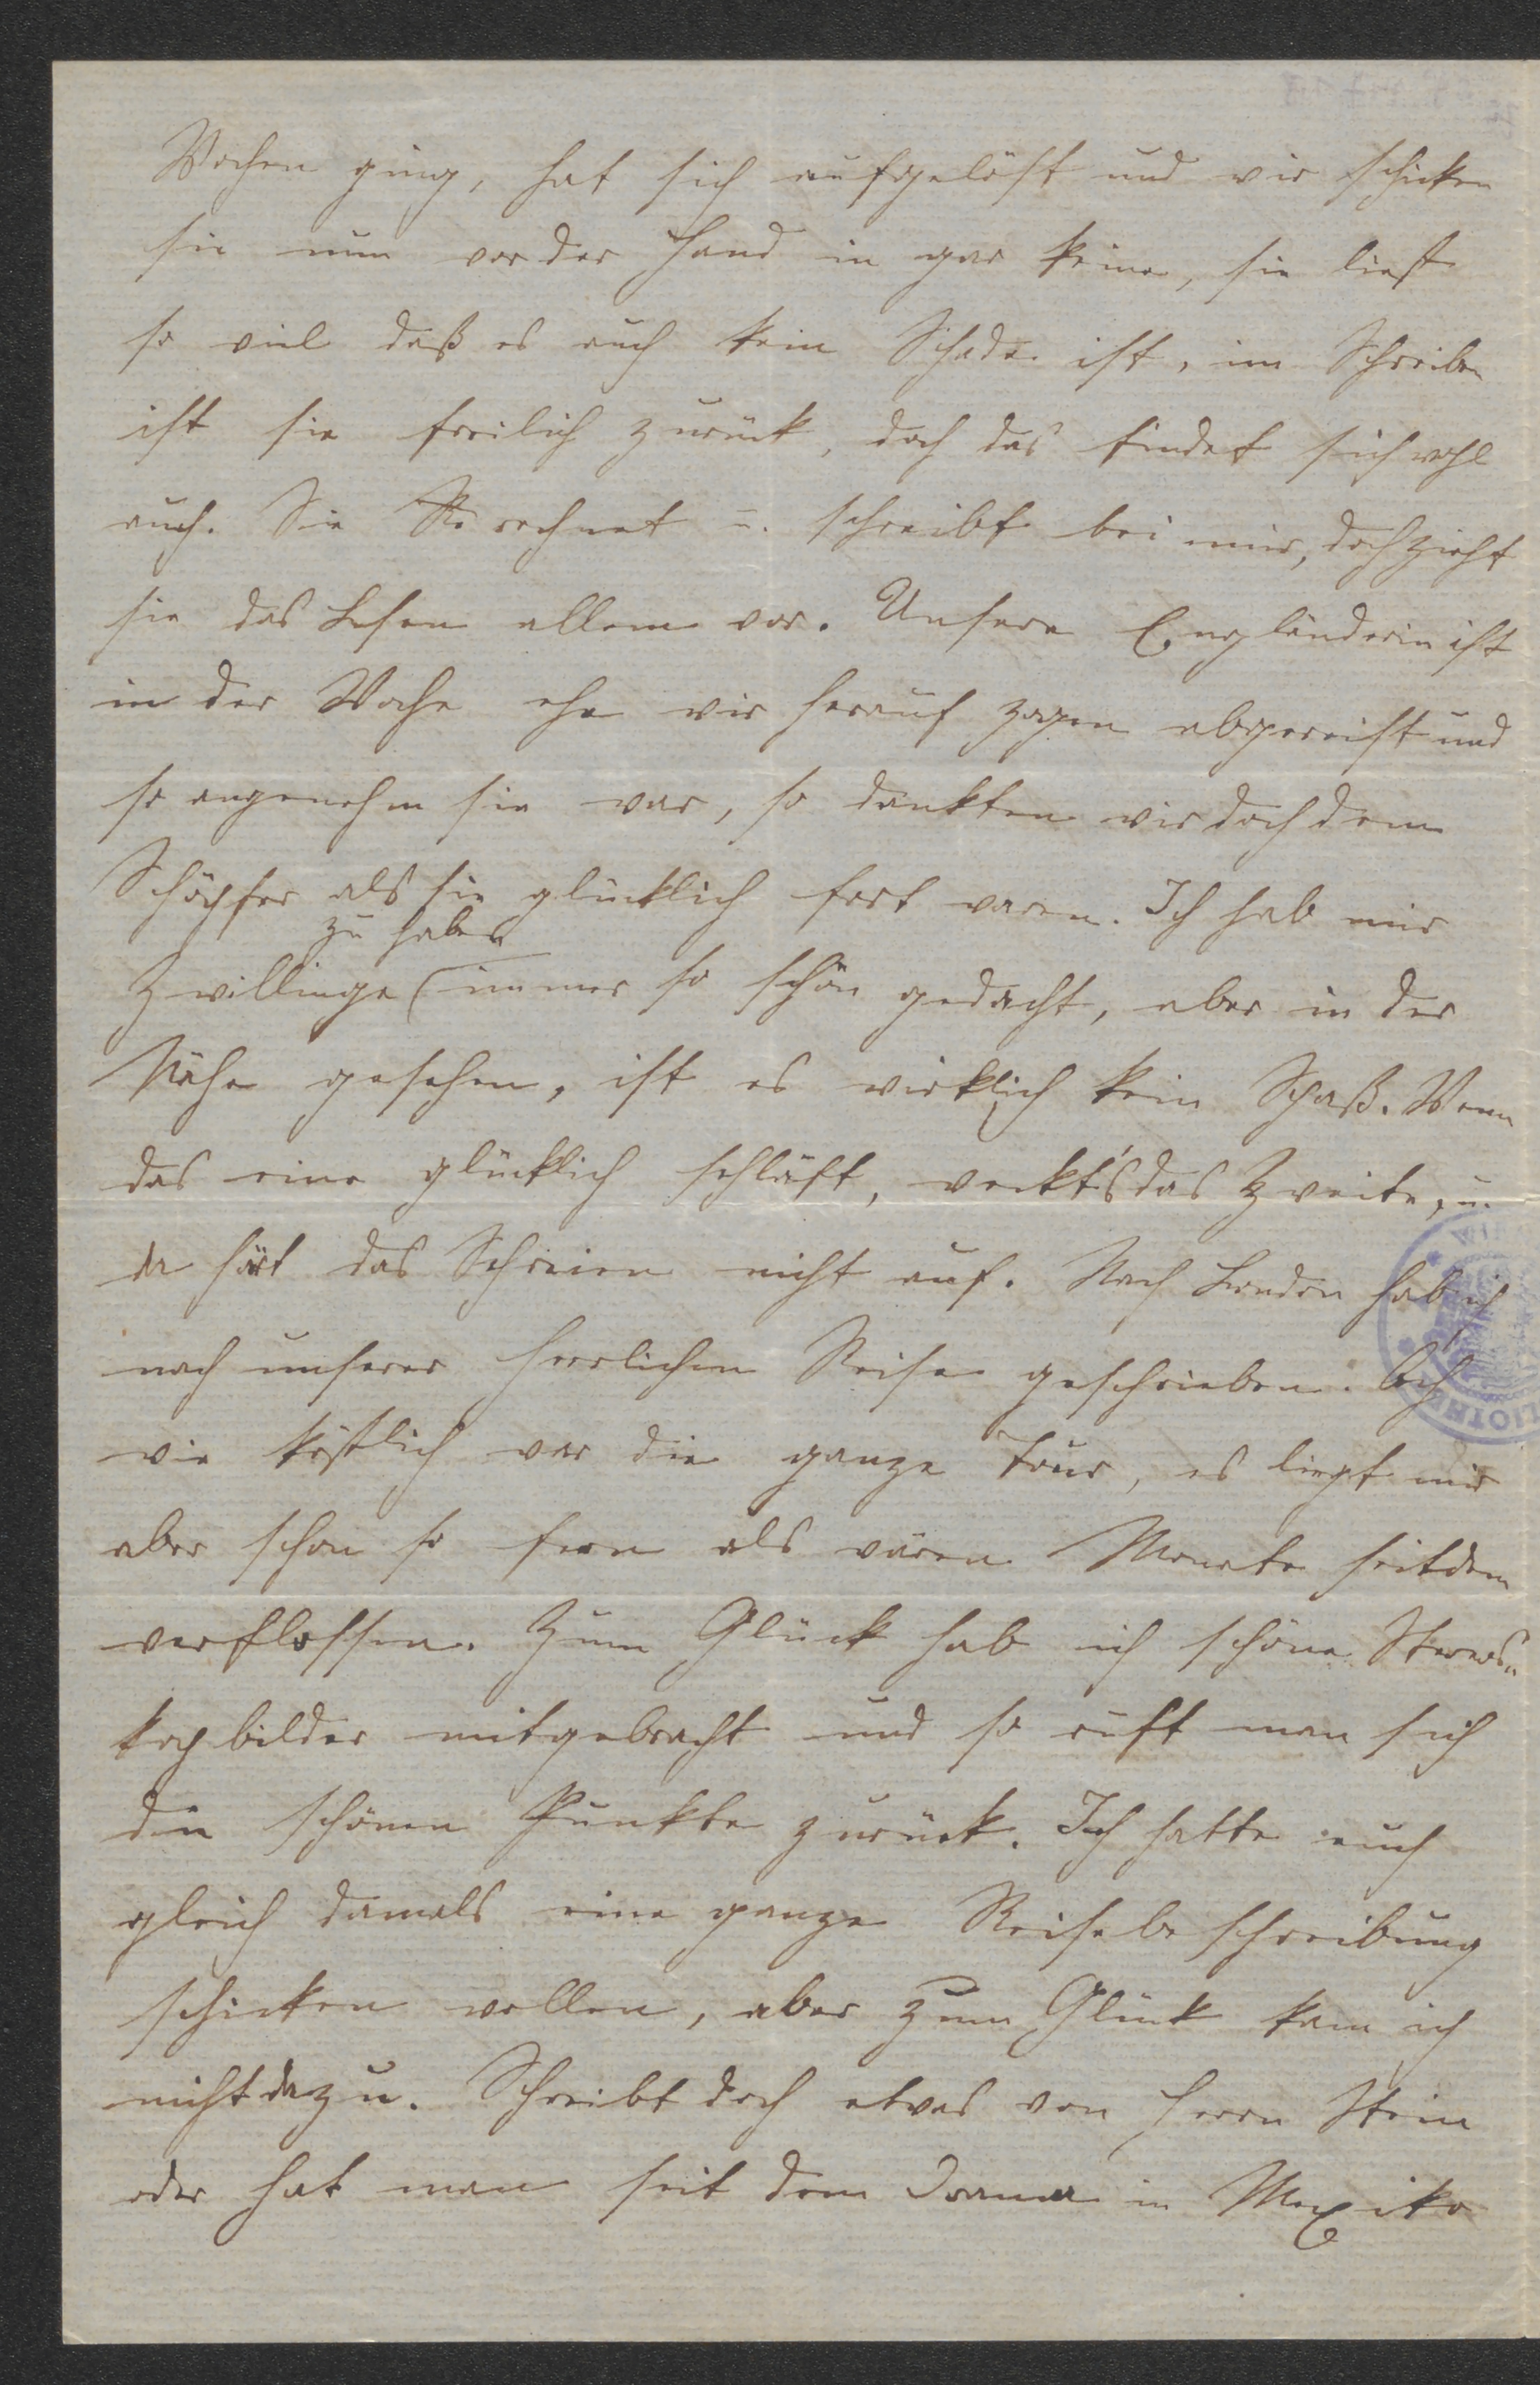 Wochen ging, hat sich aufgelöst und wir schicken
sie nun vor der Hand in gar keine, sie liest
so viel daß es auch kein Schade ist, im Schreiben
ist sie freilich zurück, doch das findet sich wohl
auch. Sie rechnet u. schreibt bei mir, doch zieht
sie das Lesen allem vor. Unsere Engländerin ist
in der Woche ehe wir herauf zogen abgereist und
so angenehm sie war, so dankten wir doch dem
Schöpfer als sie glücklich fort waren. Ich hab mir
zu haben
Zwillinge immer so schön gedacht, aber in der
Nähe gesehen, ist es wirklich kein Spaß. Wenn
das eine glücklich schläft, weckt's das Zweite, u.
da hört das Schreien nicht auf. Nach London hab ich
nach unserer herrlichen Reise geschrieben. Ach
wie köstlich war die ganze Tour, es liegt mir
aber schon so fern als wären Monate seitdem
verflossen. Zum Glück hab ich schöne Stereos-
kopbilder mitgebracht und so ruft man sich
die schönen Punkte zurück. Ich hatte euch
gleich damals eine ganze Reisebeschreibung
schicken wollen, aber zum Glück kam ich
nicht dazu. Schreibt doch etwas von Herrn Stein
oder hat man seit dem Drama in Mexiko